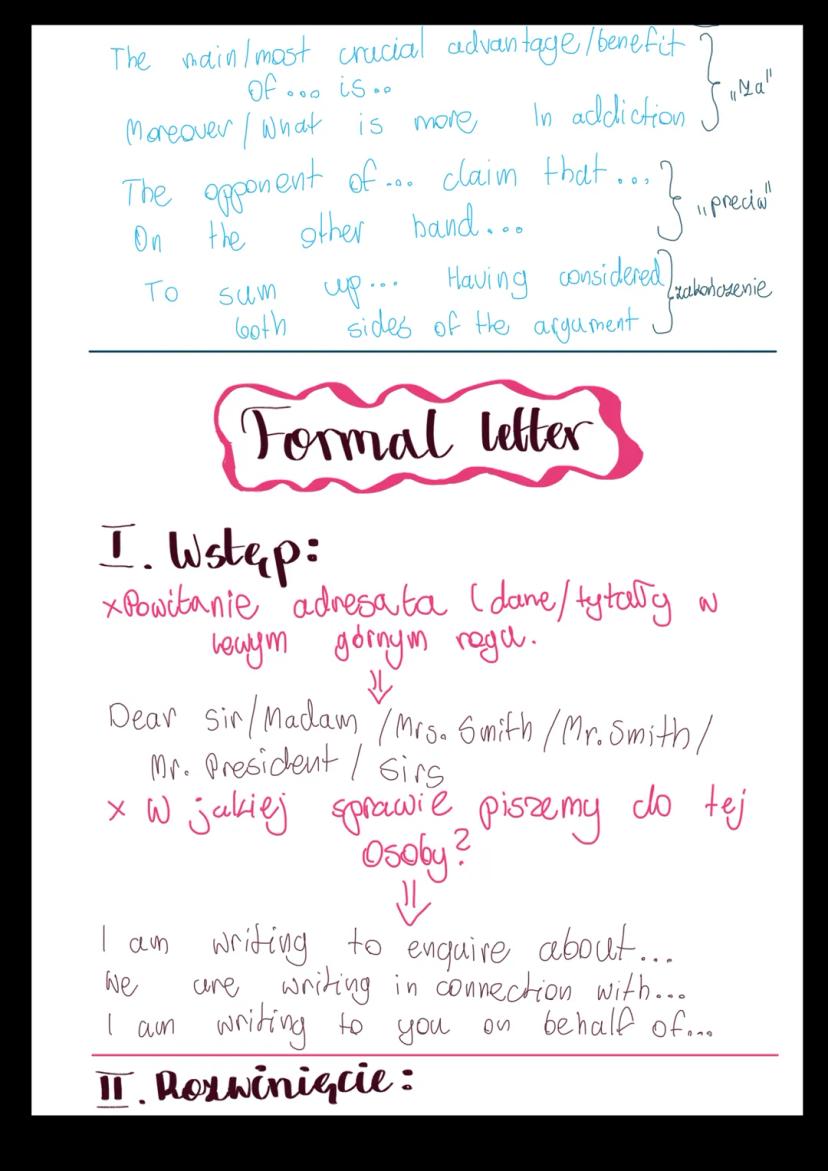 The main/most crucial advantage/benefit
of... is..
Moreover/What is more In addiction
„Za"
The opponent of... claim that...
On the other hand...
„przeciw"
To sum up... Having considered
both sides of the argument
zakończenie
Formal letter
I. Wstęp:
×Powitanie adresata (dane/tytały w
lewym górnym rogu.
Dear Sir/Madam /Mrs. Smith /Mr. Smith/
Mr. President / Sirs
× W jakiej sprawie piszemy do tej
osoby?
I am writing to enquire about...
We are writing in connection with...
I am writing to you on behalf of...
II. Rozwinięcie: